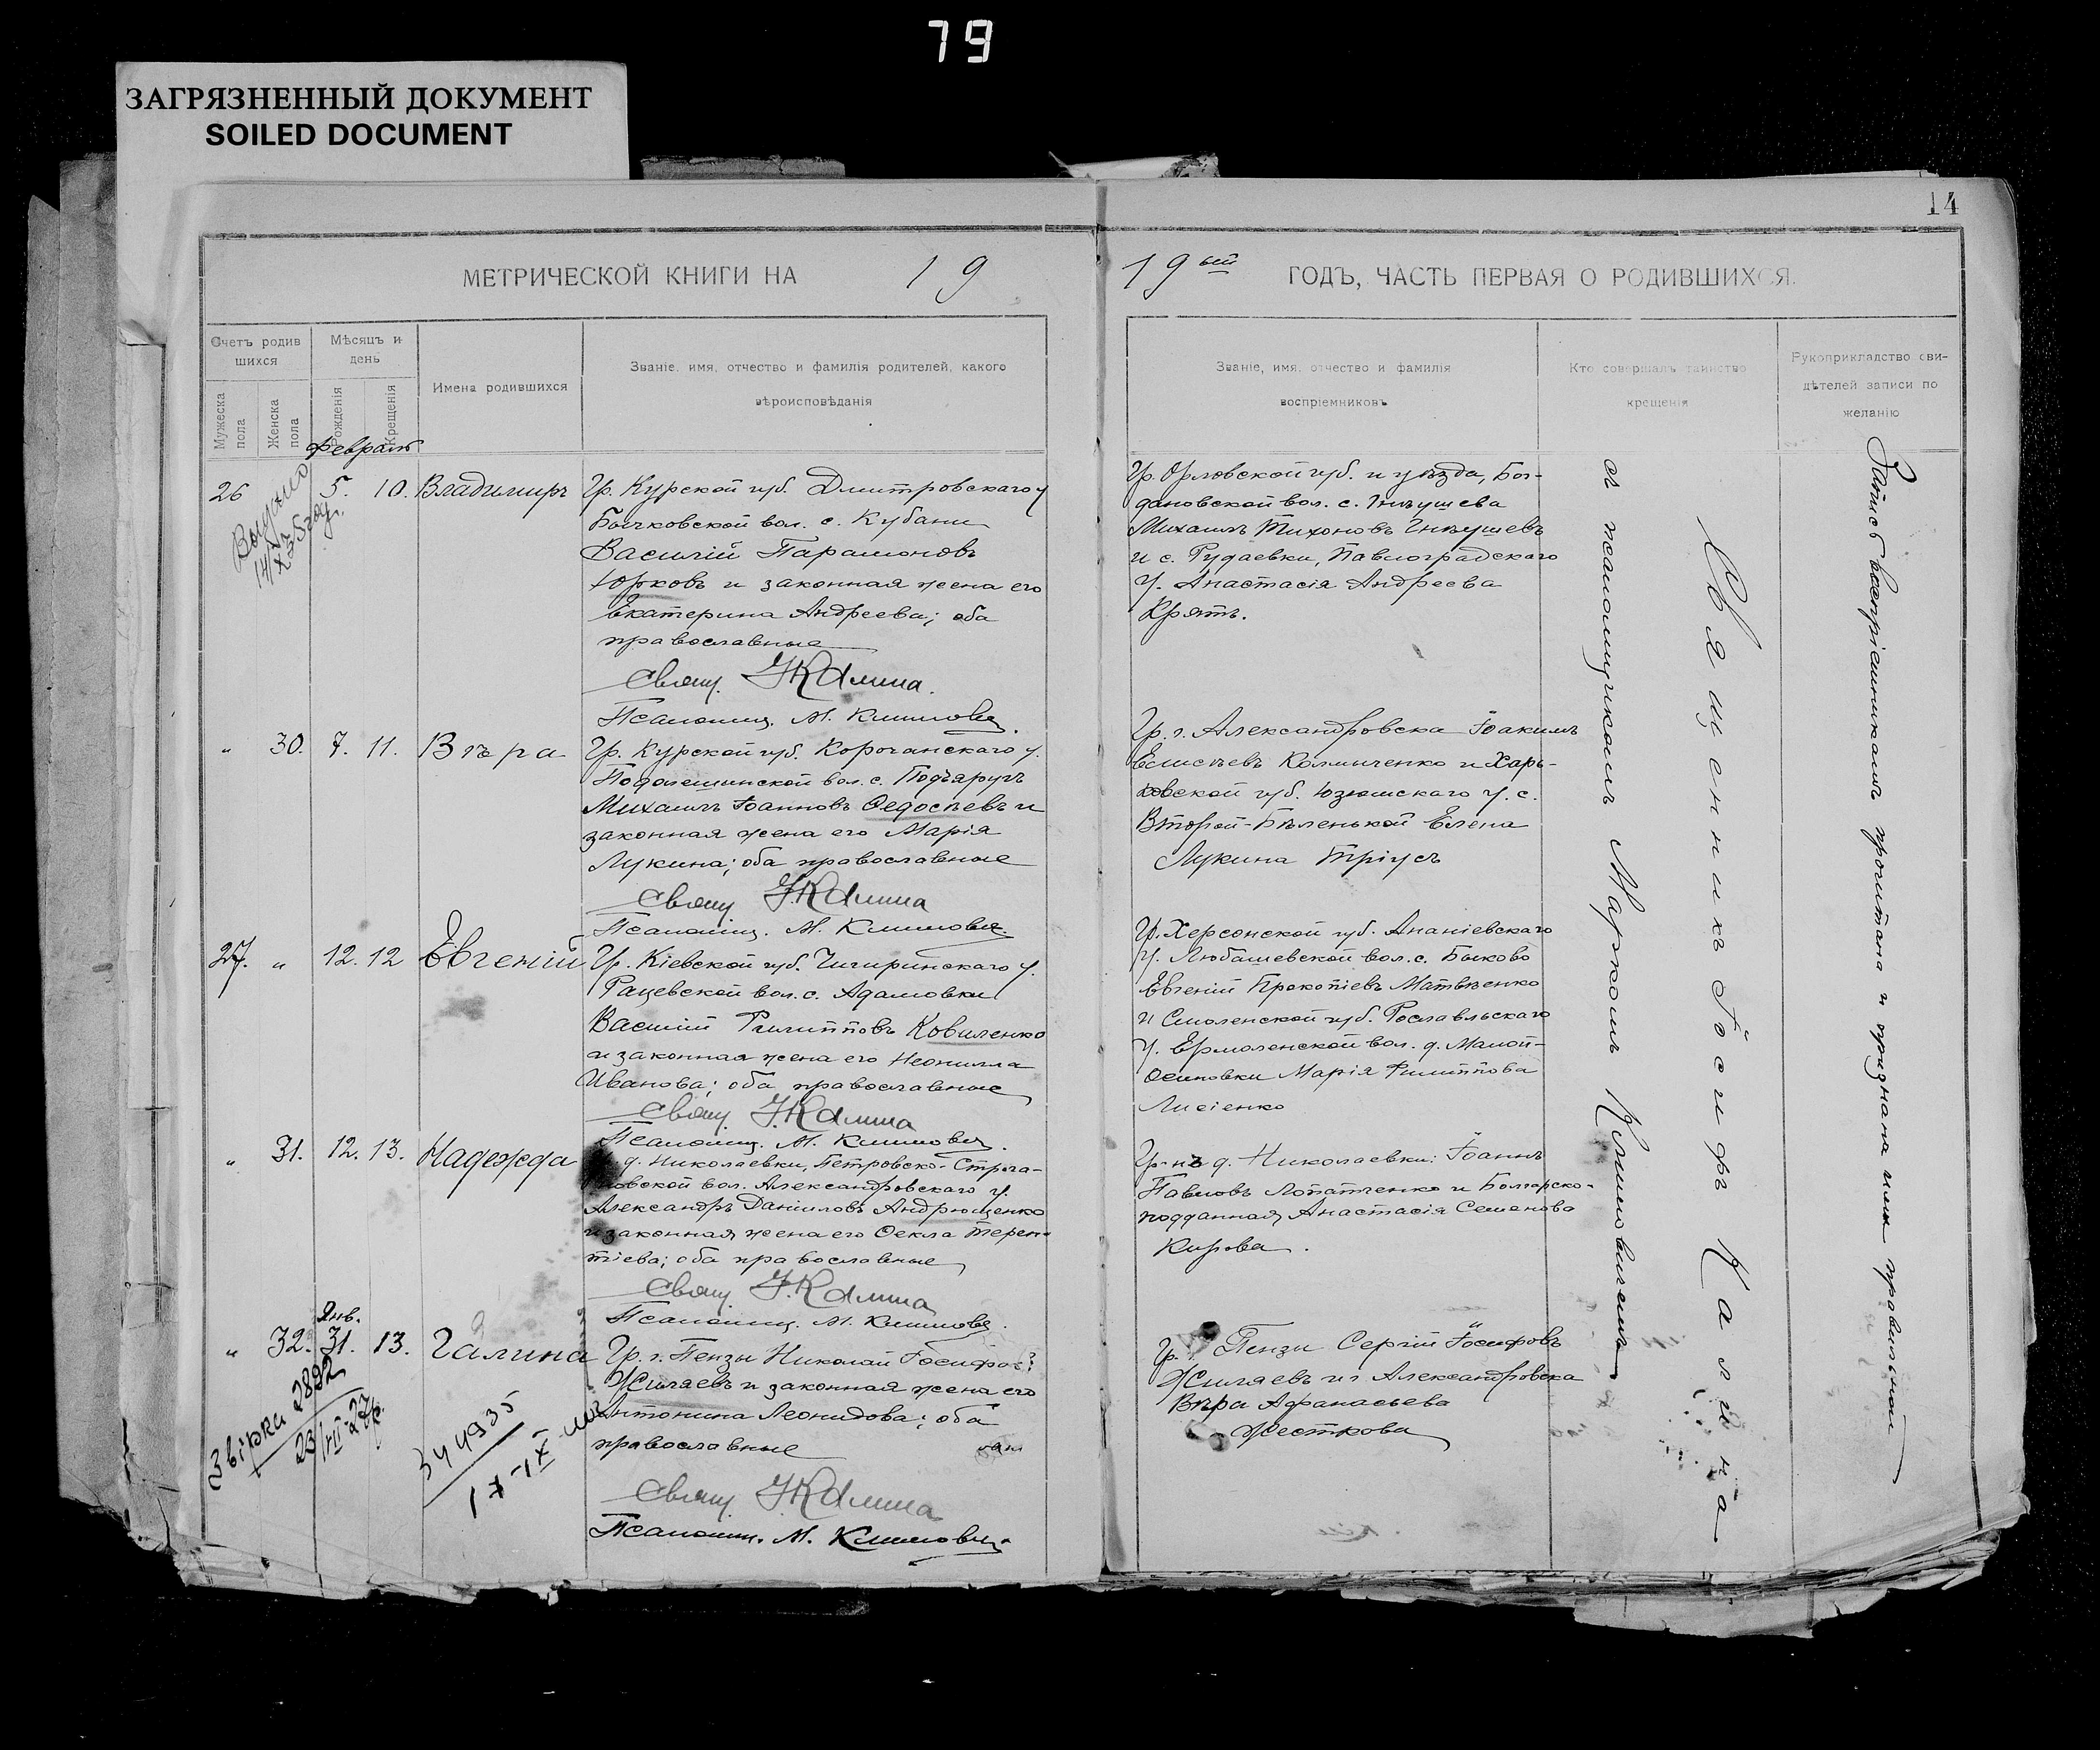 79
ЗАГРЯЗНЕННЫЙ ДОКУМЕНТ
SOILED DOCUMENT
14
МЕТРИЧЕСКОЙ КНИГИ НА 19
19ый ГОДЪ, ЧАСТЬ ПЕРВАЯ О РОДИВШИХСЯ.
Счетъ родив
шихся
Мужеска
пола
Женска
пола
Мѣсяцъ и
день
Рожденія
Крещенія
Имена родившихся
Званіе, имя, отчество и фамилія родителей, какого
вѣроисповѣданія
Званіе, имя, отчество и фамилія
воспріемниковъ
Кто совершалъ таинство
крещенія
Рукоприкладство сви-
дѣтелей записи по
желанію
Февраль
26 5. 10. Владимиръ
Гр. Курской губ. Дмитровскаго у
Бычковской вол. с. Кубани
Василій Парамоновъ
Юрковъ и законная жена его
Екатерина Андреева; оба
православные
Свящ. І. Калина.
Псаломщ. М. Климович.
Гр. Орловской губ. и уѣзда, Бог-
дановской вол. с. Гнѣушева
Михаилъ Тихоновъ Гнѣушевъ
и с. Рудаевки, Павлоградскаго
у. Анастасія Андреева
Крять.
Видано
" 30. 7. 11. Вѣра
Гр. Курской губ. Корочанскаго у.
вол. с. Подъяругъ
Михаилъ Іоанновъ Ѳедосѣевъ и
законная жена его Марія
Лукина; оба православные
Свящ. І. Калина
Псаломщ. М. Климович
Гр. г. Александровска Іоакимъ
Елисѣевъ Колмиченко и Харь-
ковской губ. Изюмскаго у. с.
Второй-Бѣленькой Елена
Лукина Тріусъ
27. " 12. 12 Евгеній
Гр. Кіевской губ. Чигиринскаго у.
Рацевской вол. с. Адамовки
Василій Филипповъ Ковиленко
и законная жена его Неонилла
Иванова; оба православные
Свящ. І. Калина
Псаломщ. М. Климович.
Гр. Херсонской губ. Ананіевскаго
у. Любашевской вол. с. Быково
Евгеній Прокопіевъ Матвѣенко
и Смоленской губ. Рославльскаго
у. Ермоленской вол. д. Малой-
Осиновки Марія Филиппова
Лисіенко
" 31. 12. 13. Надежда
д. Николаевки, Петровско-Строга-
новской вол. Александровскаго у.
Александръ Даниловъ Андрющенко
и законная жена его Ѳекла Терен-
тіева; оба православные
Свящ. І. Калина
Псаломщ. М. Климович.
Гр-нъ д. Николаевки: Іоаннъ
Павловъ Лопатченко и Болгарско-
подданная Анастасія Семенова
Кирова.
Янв.
" 32. 31. 13. Галина
Гр. г. Пензы Николай Іосифов
Жиляевъ и законная жена его
Антонина Леонидова; оба
православные
Свящ. І. Калина
Псаломщ. М. Климович.
Гр. г. Пензы Сергій Іосифовъ
Жиляевъ и г. Александровска
Вѣра Афанасьева
Жесткова
Звірка 2892
344935
съ псаломщикомъ Маркомъ Климовичемъ
Священникъ Іосифъ Калина
Запись воспріемникамъ прочитана и признана ими правильной